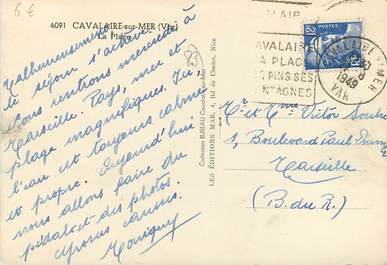 6 €
4091 CAVALAIRE-sur-MER (Var)
La Plage
Malheureusement
le séjour s'achève.
Nous rentrons mercredi à
Marseille. Pays, mer et
plage magnifiques. Ici,
l'eau est toujours calme
et propre. Aujourd'hui
nous allons faire du
pédalo et des photos
Collection BUREAU Cavalaire-sur-Mer
LES ÉDITIONS MAR, Nice
CAVALAIRE
LA PLAGE
SES PINS SES
MONTAGNES
CAVALAIRE S MER
1949
VAR
12F
POSTES
Mr et Mme Victor
1, Boulevard Paul
Marseille
(B. du R.)